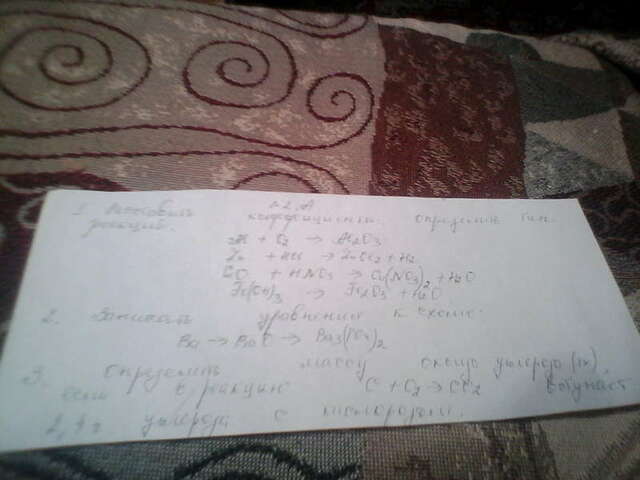 коэффициенты. Определить тип
реакции.
Al + O2 → Al2O3
Zn + HCl → ZnCl2 + H2
CuO + HNO3 → Cu(NO3)2 + H2O
Fe(OH)3 → Fe2O3 + H2O
2. Записать уравнения к схеме:
Ba → BaO → Ba3(PO4)2
3. Определить массу оксида углерода (IV),
если в реакцию C + O2 → CO2 вступает
углерода с кислородом.